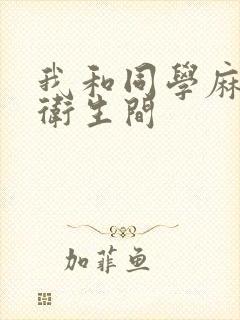 我和同學麻
衛生間
加菲魚